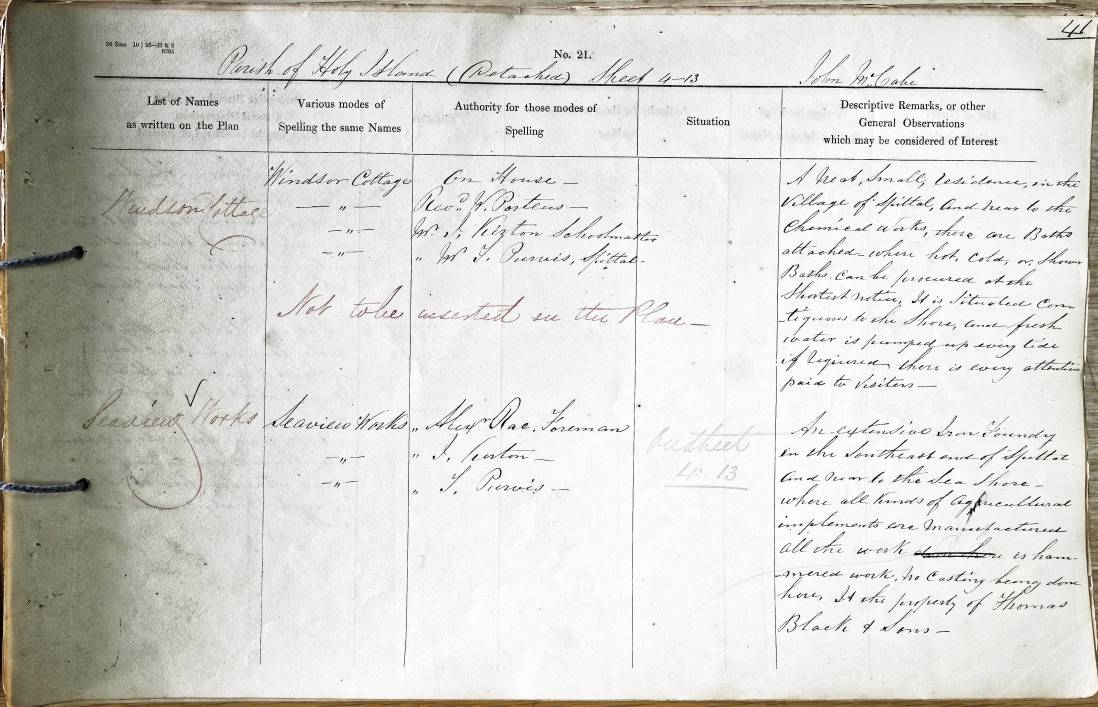 41
No. 21.
Parish of Holy Island (Detached) Sheet 4-13 John McCabe
List of Names
as written on the Plan
Various modes of
Spelling the same Names
Authority for those modes of
Spelling
Situation
Descriptive Remarks, or other
General Observations
which may be considered of Interest
Windsor Cottage
Windsor Cottage
— „ —
— „ —
— „ —
On House —
Revd. W. Porteus —
Mr J. Kirton Schoolmaster
„ Mr T. Purvis, Spittal -
A Neat, Small, residence, in the
Village of Spittal, and near to the
Chemical Works, there are Baths
attached - where hot, Cold, or, Shower
Baths. Can be procured at the
Shortest notice, It is Situated Con-
-tiguous to the Shore, and fresh
water is pumped up every tide
if required there is every attention
paid to Visiters —
Not to be inserted on the Plan —
Seaview Works
Seaview Works
— „ —
— „ —
„ Alexr Rae, Foreman
„ J. Kirton —
„ T. Purvis —
On sheet
4. 13
An extensive Iron Foundry
in the Southeast end of Spittal
and near to the Sea Shore -
where all kinds of Agricultural
implements are Manufactured
all the work done here is ham-
-mered work, no Casting being done
here, It the property of Thomas
Black & Sons —